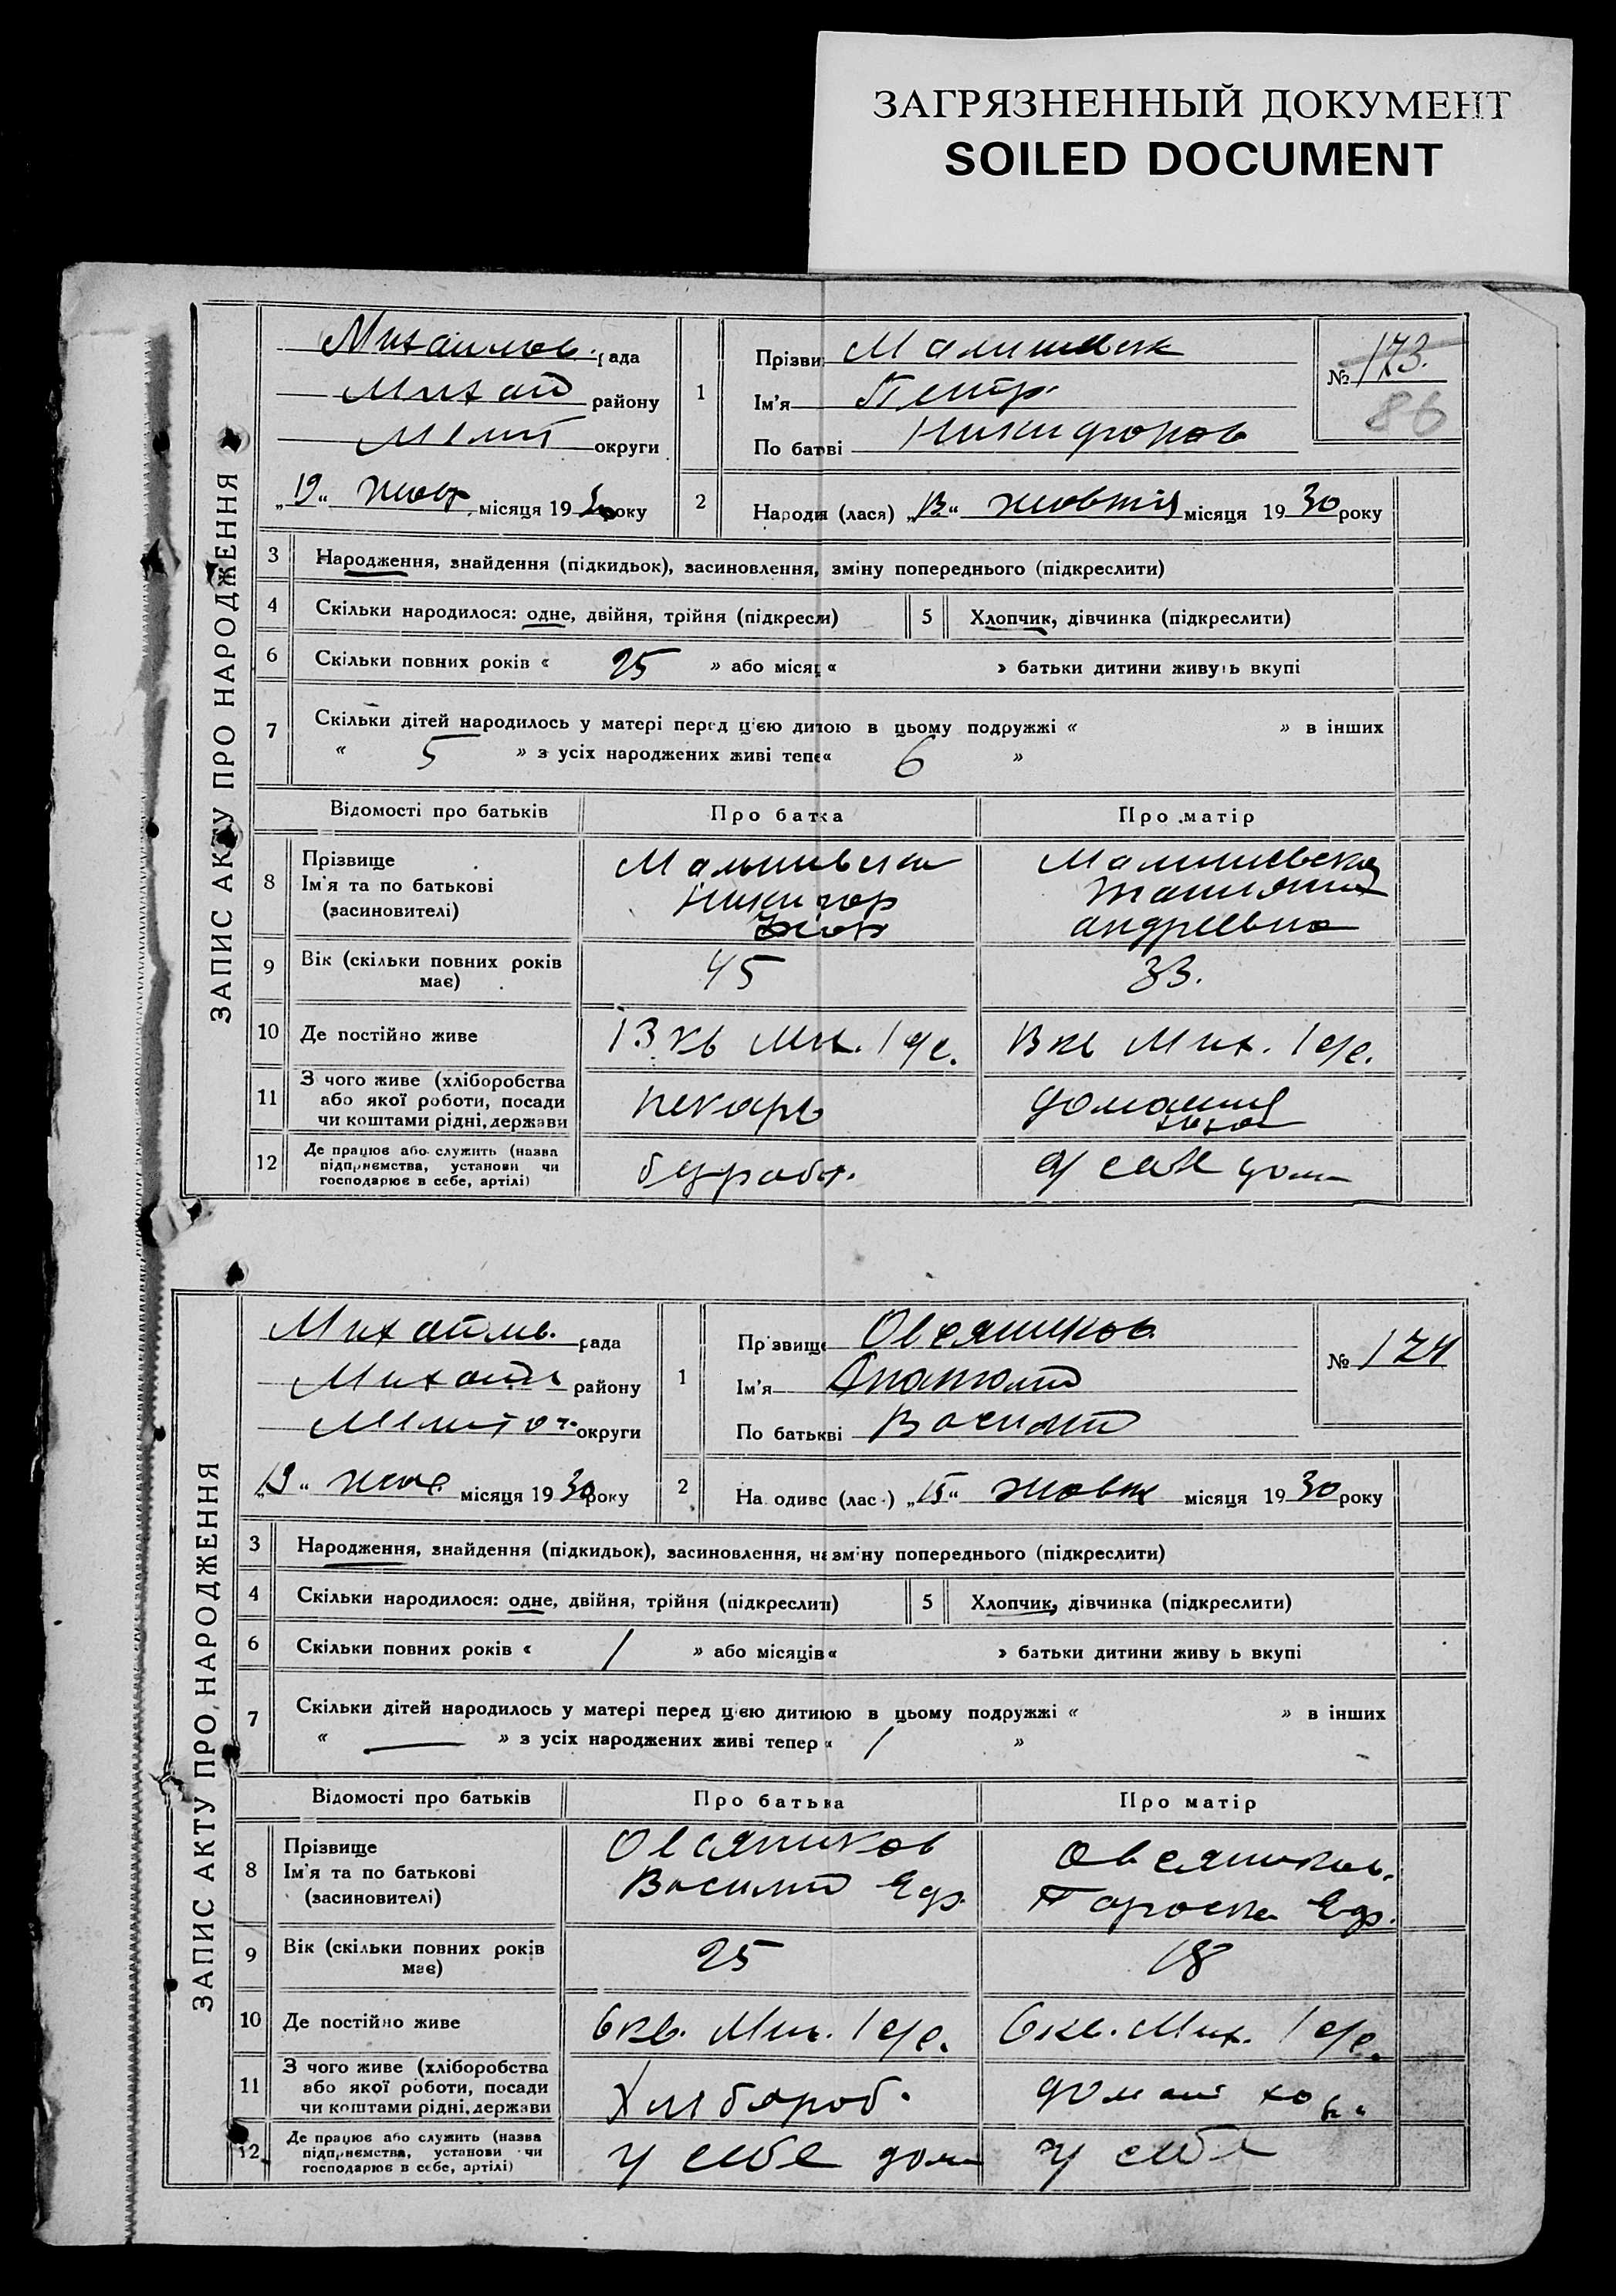 ЗАГРЯЗНЕННЫЙ ДОКУМЕНТ
SOILED DOCUMENT
ЗАПИС АКТУ ПРО НАРОДЖЕННЯ
Михайлов. рада
Михай району
Меліт округи
„19“ жовт місяця 1930 року
1
Прізви Малишевск
Ім'я Петр
По батві Никифоров
№ 173.
86
2
Народи (лася) „13“ жовтня місяця 1930 року
3 Народження, знайдення (підкидьок), засиновлення, зміну попереднього (підкреслити)
4 Скільки народилося: одне, двійня, трійня (підкресли) 5 Хлопчик, дівчинка (підкреслити)
6 Скільки повних років « 25 » або місяц « » батьки дитини живуть вкупі
7 Скільки дітей народилось у матері перед цією дитою в цьому подружжі « » в інших
« 5 » з усіх народжених живі тепе « 6 »
Відомості про батьків Про батка Про матір
8 Прізвище
Ім'я та по батькові
(засновителі)
Малишевски
Никифор
Малишевска
Татияна
андреевна
9 Вік (скільки повних років має) 45 33.
10 Де постійно живе 13 кв Мих. 1 с/с. 13 кв Мих. 1 с/с.
11 З чого живе (хліборобства
або якої роботи, посади
чи коштами рідні, держави
пекарь
домашня
12 Де працює або служить (назва
підприємства, установи чи
господарює в себе, артілі)
у себе дома
ЗАПИС АКТУ ПРО НАРОДЖЕННЯ
Михайлв. рада
Михайл району
Мелітоп. округи
„19“ жов. місяця 1930 року
1
Прізвище Овсяников
Ім'я Анатолій
По батькві Василий
№ 174
2
На одивс (лас ) „15“ жовт місяця 1930 року
3 Народження, знайдення (підкидьок), засиновлення, на зміну попереднього (підкреслити)
4 Скільки народилося: одне, двійня, трійня (підкреслит) 5 Хлопчик, дівчинка (підкреслити)
6 Скільки повних років « 1 » або місяців « » батьки дитини живу ь вкупі
7 Скільки дітей народилось у матері перед цією дитиною в цьому подружжі « » в інших
« — » з усіх народжених живі тепер « 1 »
Відомості про батьків Про батька Про матір
8 Прізвище
Ім'я та по батькові
(засиновителі)
Овсяников
Василий Едр.
Овсяников.
Параска Едр.
9 Вік (скільки повних років має) 25 18
10 Де постійно живе 6 кв. Мих. 1 с/с. 6 кв. Мих. 1 с/с.
11 З чого живе (хліборобства
або якої роботи, посади
чи коштами рідні, держави
Хлібороб.
домаш хоз.
12 Де працює або служить (назва
підприємства, установи чи
господарює в себе, артілі)
у себе дома
у себе